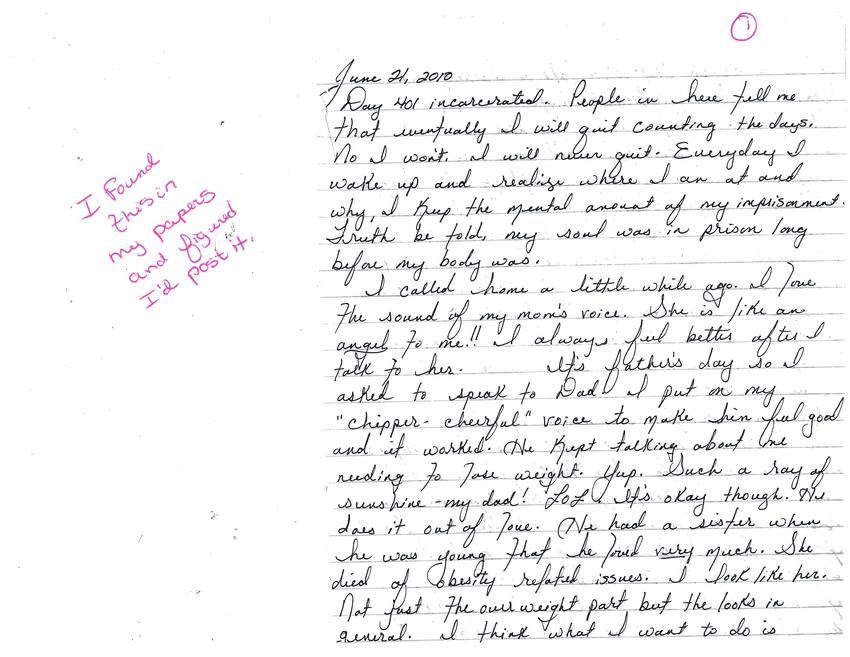 1
June 21, 2010
Day 401 incarcerated. People in here tell me
that eventually I will quit counting the days.
No I won't. I will never quit. Everyday I
wake up and realize where I am at and
why, I keep the mental amount of my imprisonment.
Truth be told, my soul was in prison long
before my body was.
I called home a little while ago. I love
the sound of my mom's voice. She is like an
angel to me!! I always feel better after I
talk to her. It's father's day so I
asked to speak to Dad. I put on my
"chipper-cheerful" voice to make him feel good
and it worked. He kept talking about me
needing to lose weight. Yup. Such a ray of
sunshine - my dad! LOL. It's okay though. He
does it out of love. (He had a sister when
he was young that he loved very much. She
died of obesity related issues. I look like her.
Not just the overweight part but the looks in
general. I think what I want to do is
I found
this in
my papers
and figured
I'd post it.